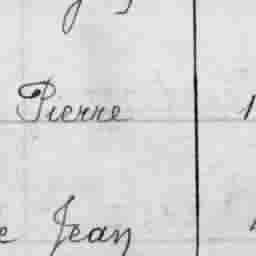 Pierre 1
e Jean